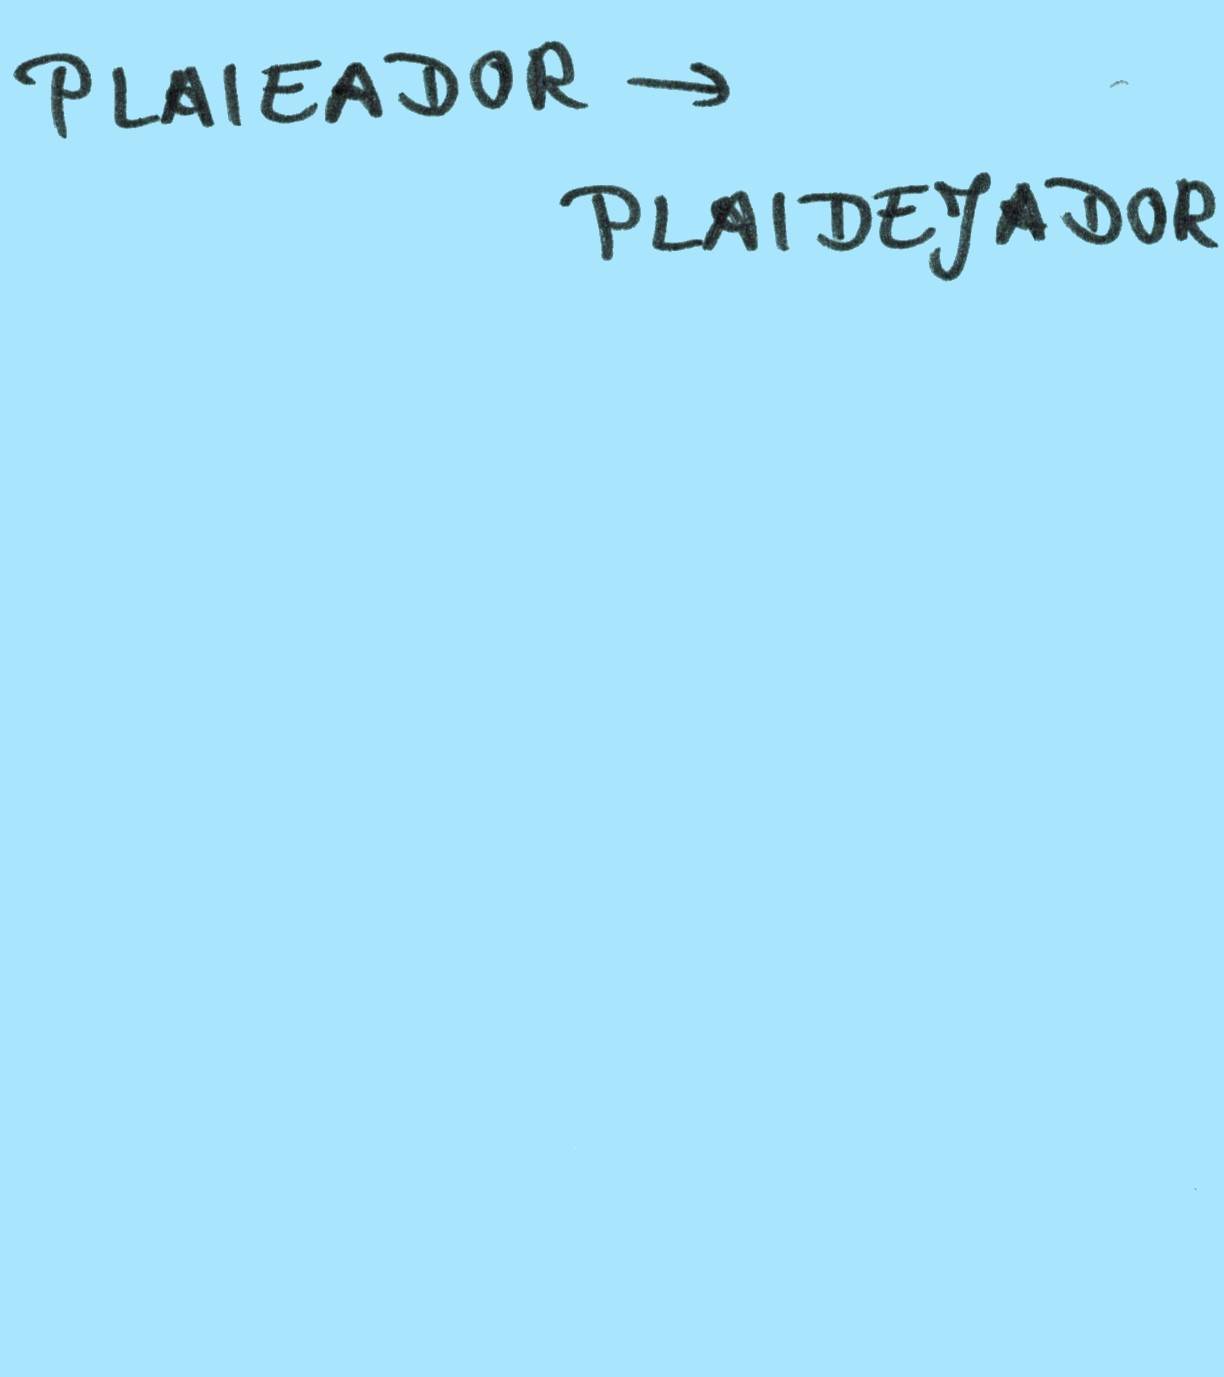 PLAIEADOR →
PLAIDEJADOR